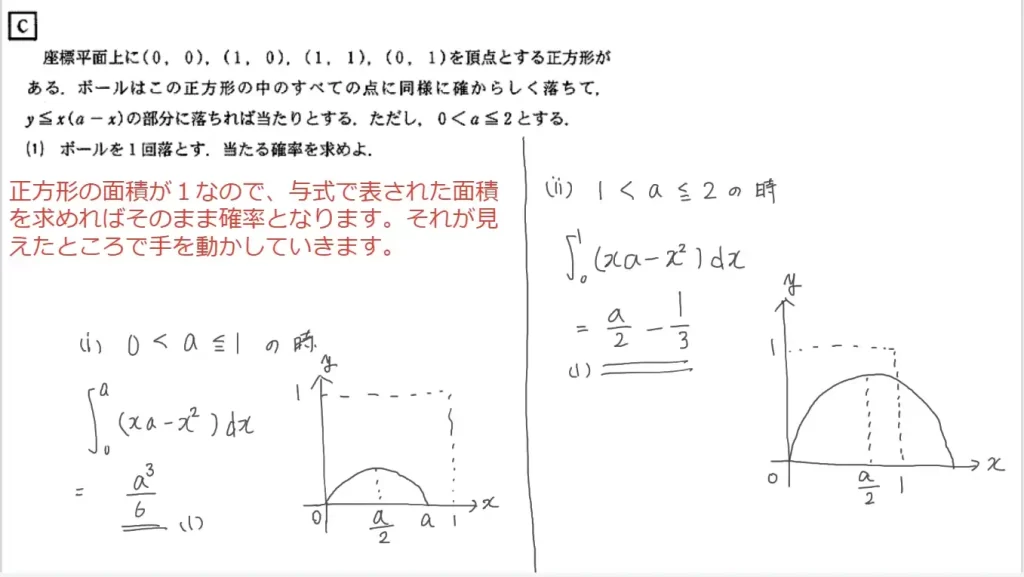 C
座標平面上に(0, 0), (1, 0), (1, 1), (0, 1)を頂点とする正方形が
ある. ボールはこの正方形の中のすべての点に同様に確からしく落ちて,
y≦x(a－x)の部分に落ちれば当たりとする. ただし, 0＜a≦2とする.
(1) ボールを1回落とす. 当たる確率を求めよ.
正方形の面積が１なので、与式で表された面積
を求めればそのまま確率となります。それが見
えたところで手を動かしていきます。
(i) 0 < a ≦ 1 の時
∫₀ᵃ (xa－x²)dx
= a³/6 (1)
y
1
0 a/2 a 1 x
(ii) 1 < a ≦ 2 の時
∫₀¹ (xa－x²)dx
= a/2 － 1/3
(1)
y
1
0 a/2 1 x